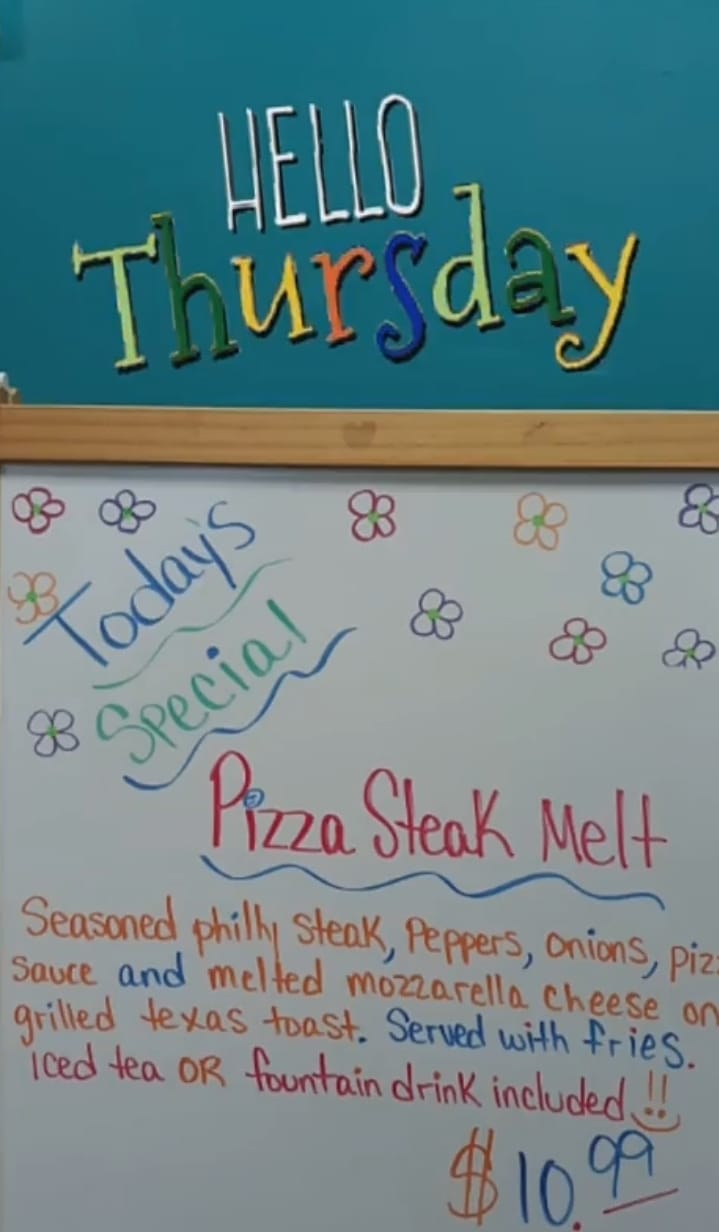 HELLO
Thursday
Today's
Special
Pizza Steak Melt
Seasoned philly steak, Peppers, onions, piz
sauce and melted mozzarella cheese on
grilled texas toast. Served with fries.
Iced tea OR fountain drink included!!
$10.99